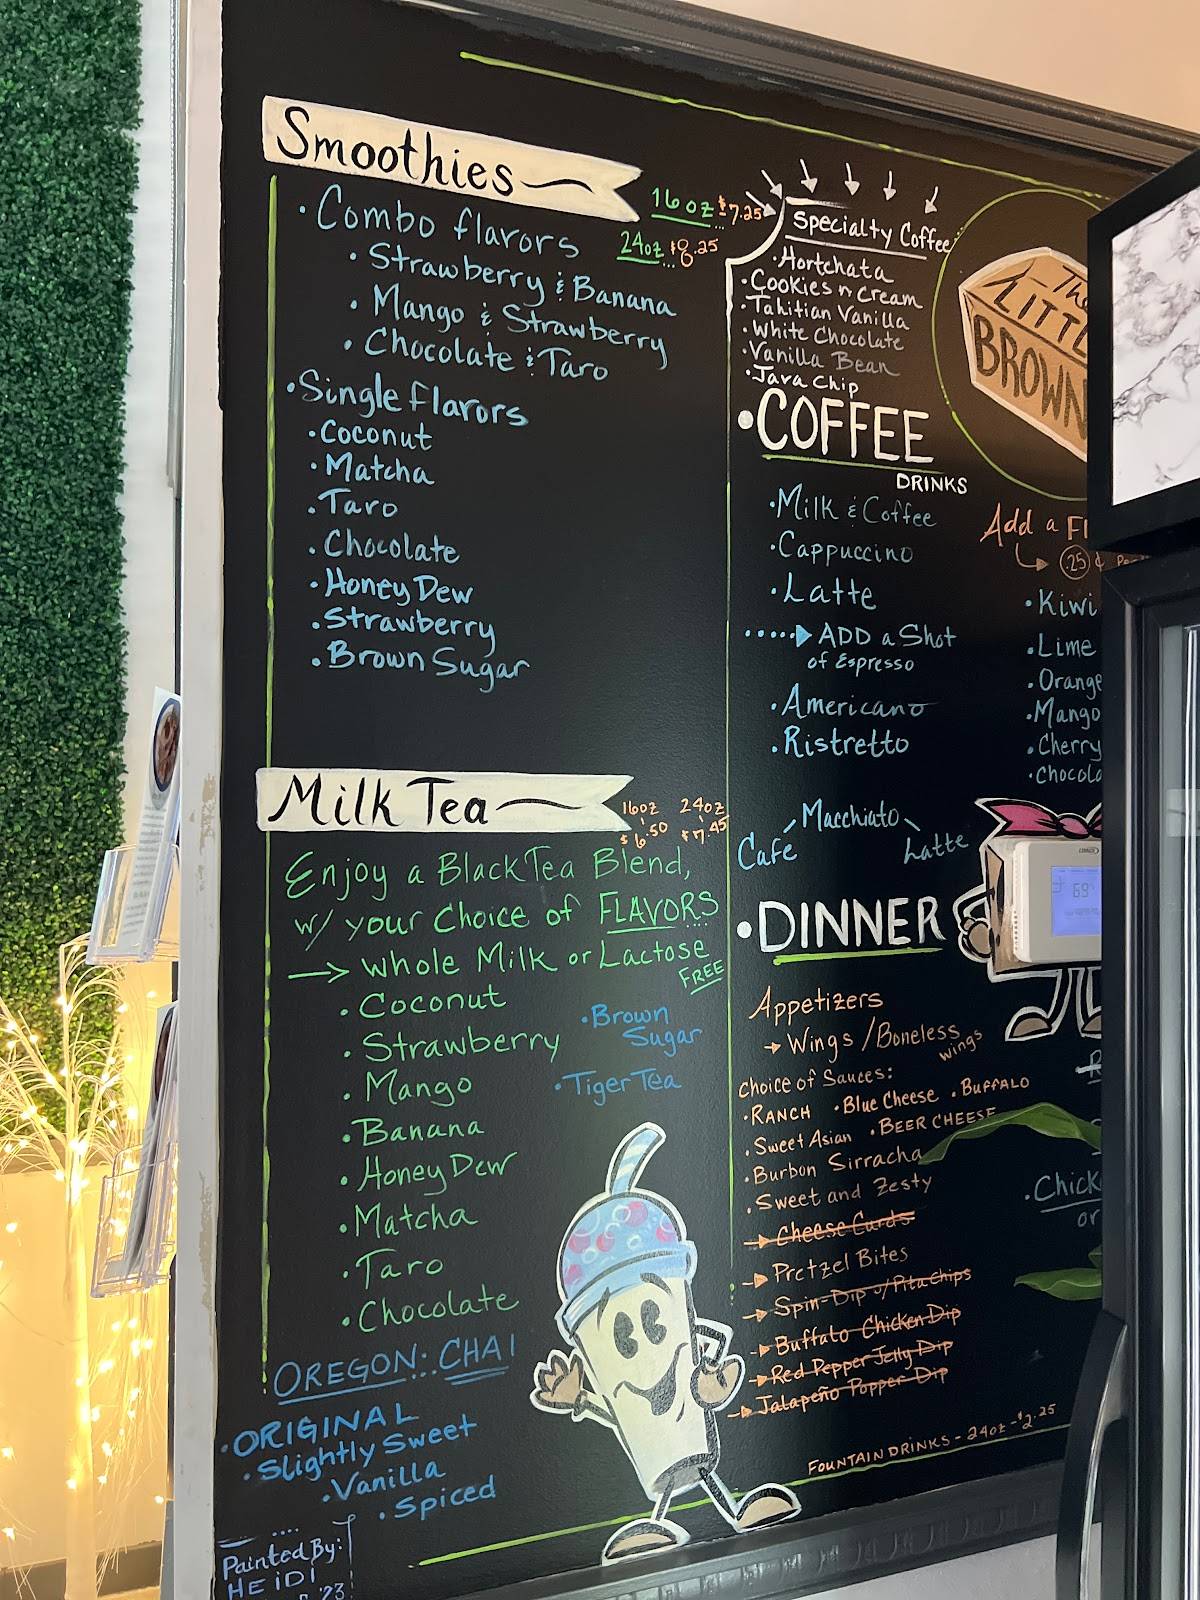 Smoothies
16oz $7.25
24oz $8.25
• Combo flavors
• Strawberry & Banana
• Mango & Strawberry
• Chocolate & Taro
• Single Flavors
• Coconut
• Matcha
• Taro
• Chocolate
• Honey Dew
• Strawberry
• Brown Sugar
Milk Tea
16oz 24oz
$6.50 $7.45
Enjoy a Black Tea Blend,
w/ your choice of FLAVORS
→ whole Milk or Lactose
FREE
• Coconut
• Strawberry
• Mango
• Banana
• Honey Dew
• Matcha
• Taro
• Chocolate
• Brown
Sugar
• Tiger Tea
OREGON: CHAI
• ORIGINAL
• Slightly Sweet
• Vanilla
• Spiced
Painted By:
HEiDI
'23
Specialty Coffee
• Hortchata
• Cookies n Cream
• Tahitian Vanilla
• White Chocolate
• Vanilla Bean
• Java Chip
The
LITTL
BROWN
• COFFEE
DRINKS
• Milk & Coffee
• Cappuccino
• Latte
ADD a Shot
of Espresso
• Americano
• Ristretto
Macchiato
Café
Latte
Add a Fl
.25 ¢
• Kiwi
• Lime
• Orange
• Mango
• Cherry
• Chocola
LENNOX
69
• DINNER
Appetizers
→ Wings / Boneless
wings
Choice of Sauces:
• RANCH • Blue Cheese • BUFFALO
• Sweet Asian • BEER CHEESE
• Burbon Sirracha
• Sweet and Zesty
→ Cheese Curds
→ Pretzel Bites
→ Spin-Dip w/ Pita chips
→ Buffalo Chicken Dip
→ Red Pepper Jelly Dip
→ Jalapeño Popper Dip
• Chick
or
FOUNTAIN DRINKS - 24oz - $2.25